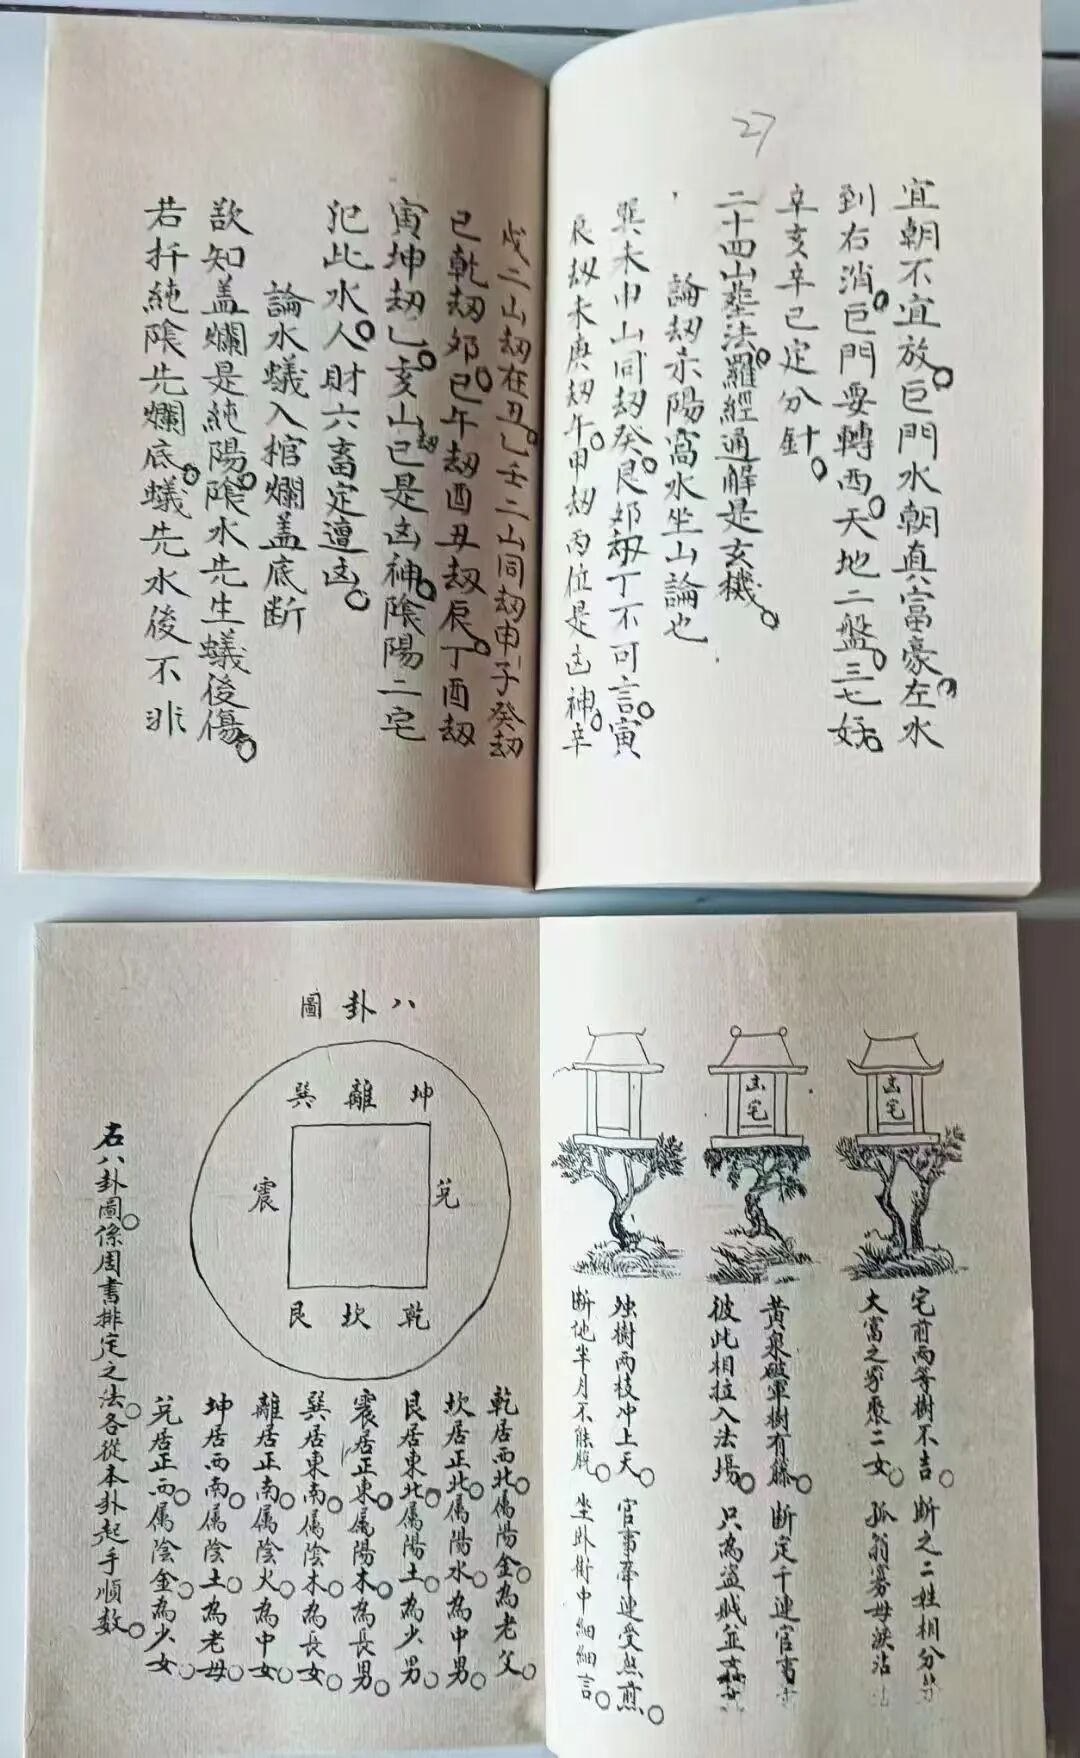 27
宜朝不宜放。巨門水朝真富豪。左水
到右消。巨門要轉西。天地二盤。三七好。
辛亥辛巳定分針。
二十四山塟法。羅經通解是玄機。
論刼赤陽富水坐山論也
巽未申山同刼癸。艮夘刼丁不可言。寅
艮刼未庚刼午。甲刼丙位是凶神。辛
戌二山刼在丑。乙壬二山同刼申。子癸刼
巳乾刼夘。巳午刼酉丑刼辰。丁酉刼
寅坤刼乙。亥山刼巳是凶神。陰陽二宅
犯此水。人財六畜定遭凶。
論水蟻入棺爛盖底斷
欲知盖爛是純陽。陰水先生蟻後傷。
若扦純陰先爛底。蟻先水後不非
凶宅
凶宅
宅前兩等樹不吉。斷之二姓相分
大富之家聚二女。孤翁寡母淚沾
黃泉破軍樹有藤。斷定干連官事
彼此相拉入法場。只為盜賊並
独樹兩枝冲上天。官事牽連受熬煎。
断他半月不能脫。坐卧街中細細言。
八卦圖
巽離坤
震兌
艮坎乾
乾居西北。属陽金。為老父。
坎居正北。属陽水。為中男。
艮居東北。属陽土。為少男。
震居正東。属陽木。為長男。
巽居東南。属陰木。為長女。
離居正南。属陰火。為中女。
坤居西南。属陰土。為老母。
兌居正西。属陰金。為少女。
右八卦圖。係周書排定之法。各從本卦起手順数。